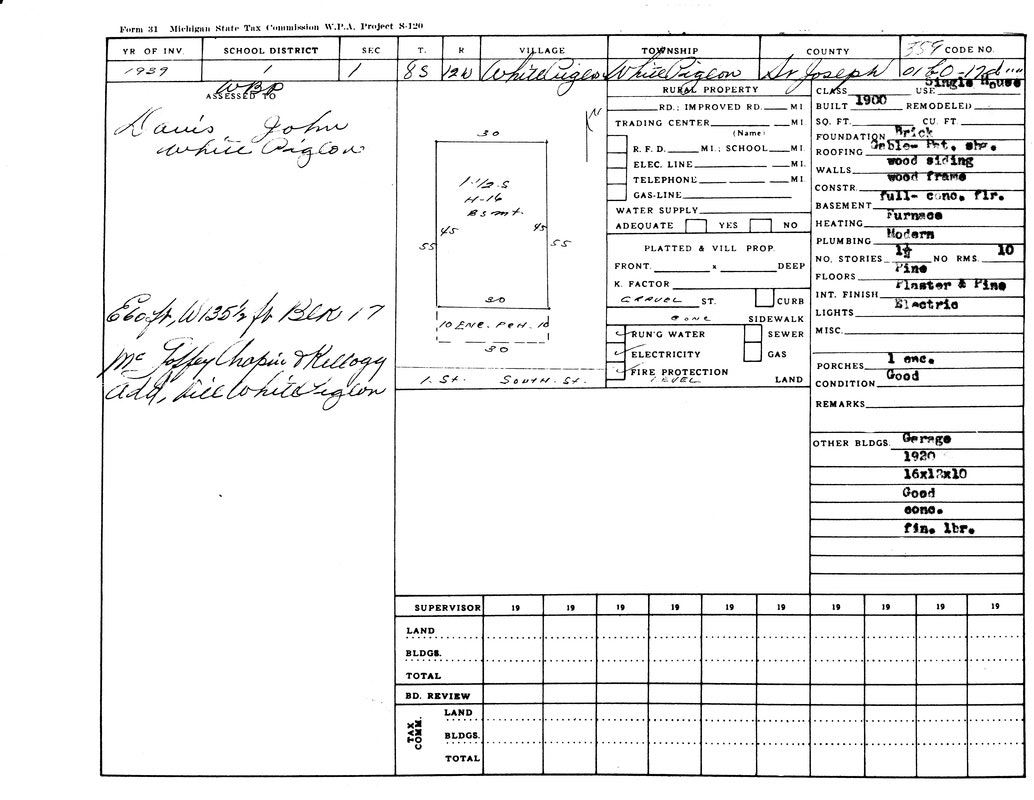 Form 31 Michigan State Tax Commission W.P.A. Project S-120
YR OF INV. SCHOOL DISTRICT SEC T. R VILLAGE TOWNSHIP COUNTY 359 CODE NO.
1939 1 1 8S 12W White Pigeon White Pigeon St Joseph
WBP
ASSESSED TO
Davis, John
White Pigeon
E60 ft, W135½ ft Blk 17
Mc Goffey Chapin & Kellogg
Add, Vill White Pigeon
N
30
1-1/2-S
H-16
Bsmt.
45 45
55 55
30
10 ENC. PCH. 10
30
1. St. SOUTH. St.
RURAL PROPERTY
RD.; IMPROVED RD. MI
TRADING CENTER MI.
(Name)
R. F. D. MI.; SCHOOL MI.
ELEC. LINE MI.
TELEPHONE MI.
GAS-LINE
WATER SUPPLY
ADEQUATE YES NO
PLATTED & VILL PROP.
FRONT. x DEEP
K. FACTOR
GRAVEL ST. CURB
CONC SIDEWALK
RUN'G WATER SEWER
ELECTRICITY GAS
FIRE PROTECTION
LEVEL LAND
CLASS USE Single House
BUILT 1900 REMODELED
SQ. FT. CU. FT.
FOUNDATION Brick
ROOFING Gable- Pat. shg.
WALLS wood siding
CONSTR. wood frame
BASEMENT full- conc. flr.
HEATING Furnace
PLUMBING Modern
NO. STORIES 1½ NO RMS. 10
FLOORS Pine
INT. FINISH Plaster & Pine
LIGHTS Electric
MISC.
PORCHES 1 enc.
CONDITION Good
REMARKS
OTHER BLDGS. Garage
1920
16x12x10
Good
conc.
fin. lbr.
SUPERVISOR 19 19 19 19 19 19 19 19 19 19
LAND
BLDGS.
TOTAL
BD. REVIEW
TAX COMM.
LAND
BLDGS.
TOTAL